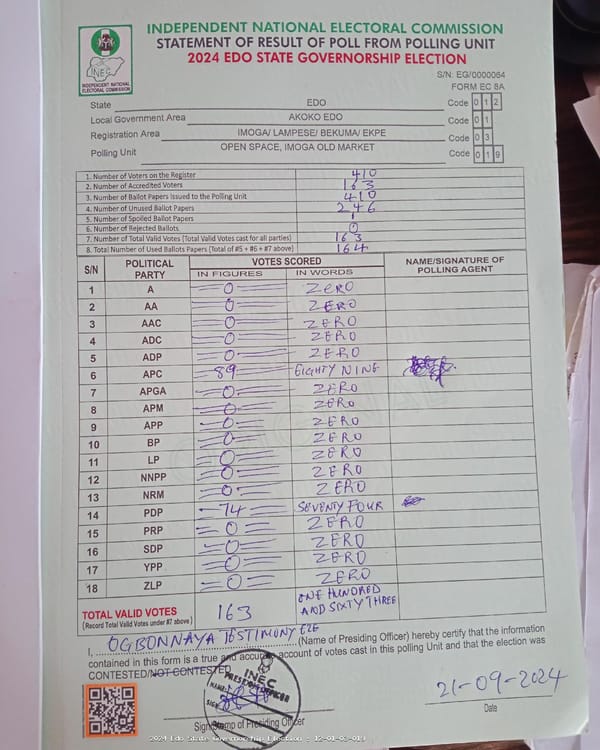 INDEPENDENT NATIONAL ELECTORAL COMMISSION
STATEMENT OF RESULT OF POLL FROM POLLING UNIT
2024 EDO STATE GOVERNORSHIP ELECTION
INEC
INDEPENDENT NATIONAL ELECTORAL COMMISSION
S/N: EG/0000064
FORM EC 8A
State EDO Code 0 1 2
Local Government Area AKOKO EDO Code 0 1
Registration Area IMOGA/ LAMPESE/ BEKUMA/ EKPE Code 0 3
Polling Unit OPEN SPACE, IMOGA OLD MARKET Code 0 1 9
1. Number of Voters on the Register 410
2. Number of Accredited Voters 163
3. Number of Ballot Papers Issued to the Polling Unit 410
4. Number of Unused Ballot Papers 246
5. Number of Spoiled Ballot Papers 1
6. Number of Rejected Ballots 0
7. Number of Total Valid Votes (Total Valid Votes cast for all parties) 163
8. Total Number of Used Ballots Papers (Total of #5 + #6 + #7 above) 164
S/N POLITICAL PARTY VOTES SCORED NAME/SIGNATURE OF POLLING AGENT
IN FIGURES IN WORDS
1 A 0 ZERO
2 AA 0 ZERO
3 AAC 0 ZERO
4 ADC 0 ZERO
5 ADP 0 ZERO
6 APC 89 EIGHTY NINE
7 APGA 0 ZERO
8 APM 0 ZERO
9 APP 0 ZERO
10 BP 0 ZERO
11 LP 0 ZERO
12 NNPP 0 ZERO
13 NRM 0 ZERO
14 PDP 74 SEVENTY FOUR
15 PRP 0 ZERO
16 SDP 0 ZERO
17 YPP 0 ZERO
18 ZLP 0 ZERO
TOTAL VALID VOTES 163 ONE HUNDRED AND SIXTY THREE
(Record Total Valid Votes under #7 above)
I, OGBONNAYA TESTIMONY EZE (Name of Presiding Officer) hereby certify that the information
contained in this form is a true and accurate account of votes cast in this polling Unit and that the election was
CONTESTED/NOT CONTESTED
INEC
PRESIDING OFFICER
NAME:
SIGN:
21-09-2024
Sign/Stamp of Presiding Officer Date
2024 Edo State Governorship Election - 12-01-03-019